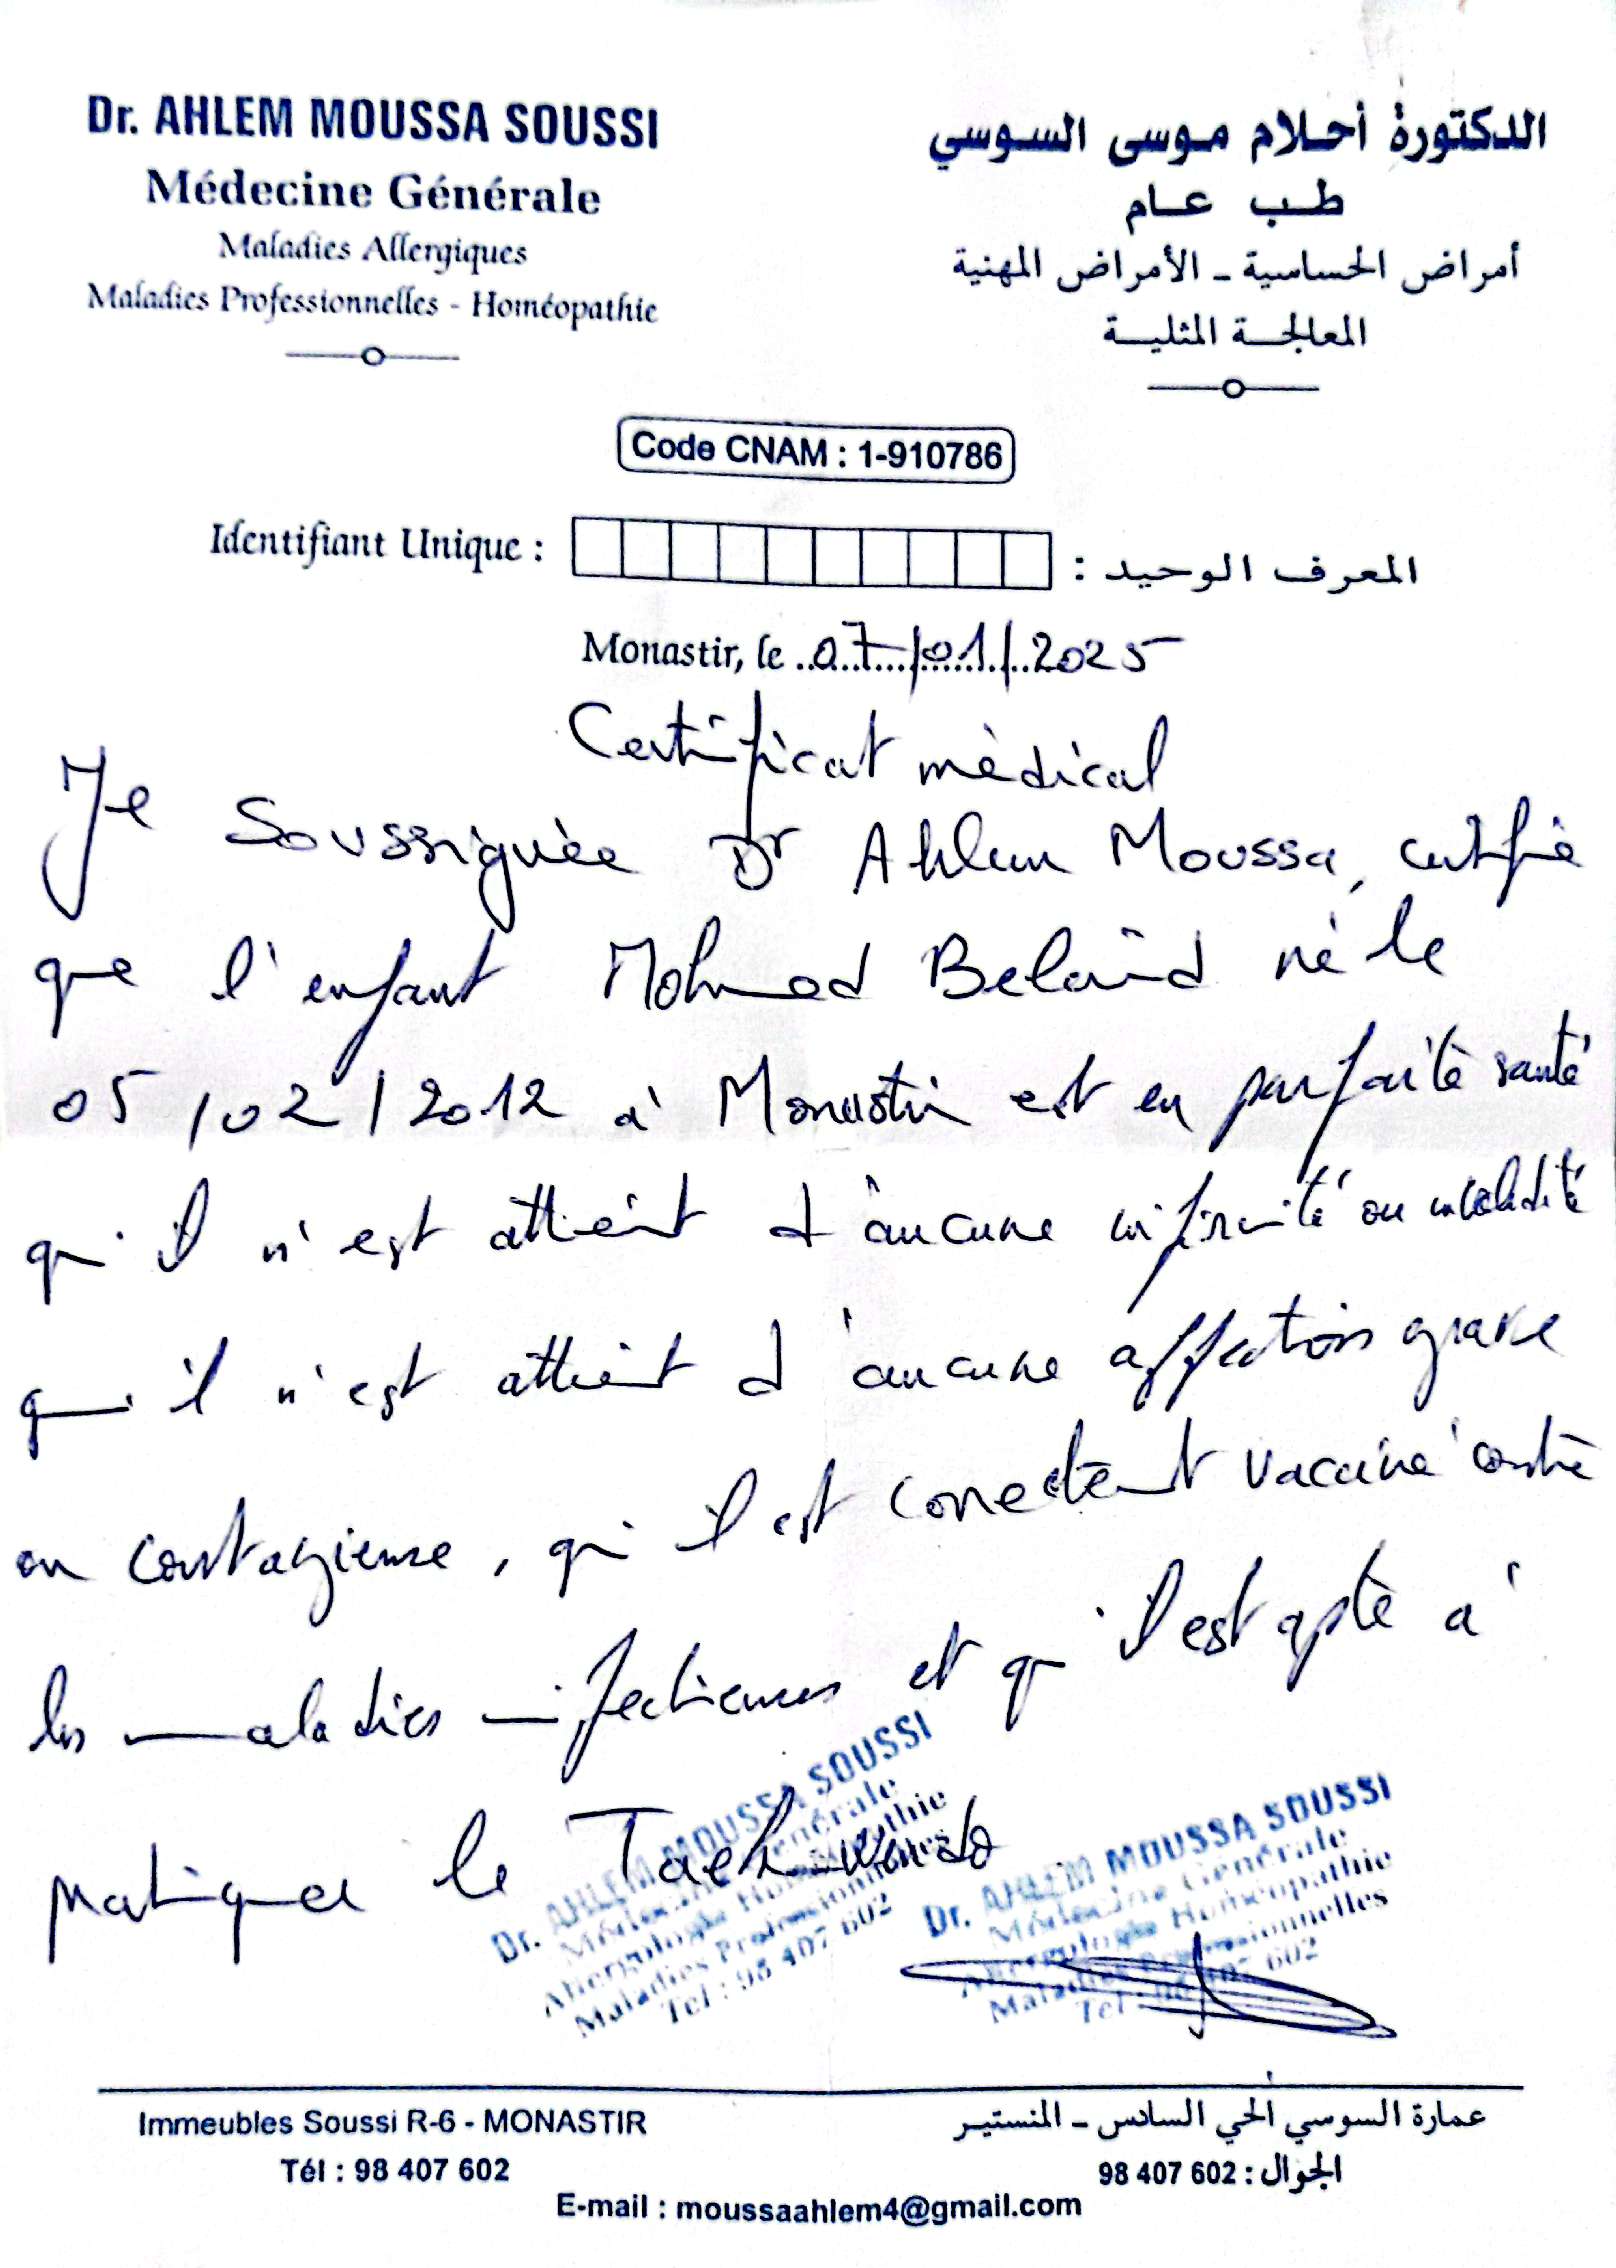 Dr. AHLEM MOUSSA SOUSSI
Médecine Générale
Maladies Allergiques
Maladies Professionnelles - Homéopathie
الدكتورة أحلام موسى السوسي
طب عام
أمراض الحساسية - الأمراض المهنية
المعالجة المثلية
Code CNAM : 1-910786
Identifiant Unique :
المعرف الوحيد :
Monastir, le 07/01/2025
Certificat médical
Je soussignée Dr Ahlem Moussa, certifie
que l'enfant Mohmed Belaïd né le
05/02/2012 à Monastir est en parfaite santé
qu'il n'est atteint d'aucune infirmité ou invalidité
qu'il n'est atteint d'aucune affection grave
ou contagieuse, qu'il est correctement vacciné contre
les maladies infectieuses et qu'il est apte à
pratiquer le Taekwondo
Dr. AHLEM MOUSSA SOUSSI
Médecine Générale
Allergologie Homéopathie
Maladies Professionnelles
Tel : 98 407 602
Dr. AHLEM MOUSSA SOUSSI
Médecine Générale
Allergologie Homéopathie
Maladies Professionnelles
Tel : 98 407 602
Immeubles Soussi R-6 - MONASTIR
Tél : 98 407 602
عمارة السوسي الحي السادس - المنستير
الجوال : 98 407 602
E-mail : moussaahlem4@gmail.com